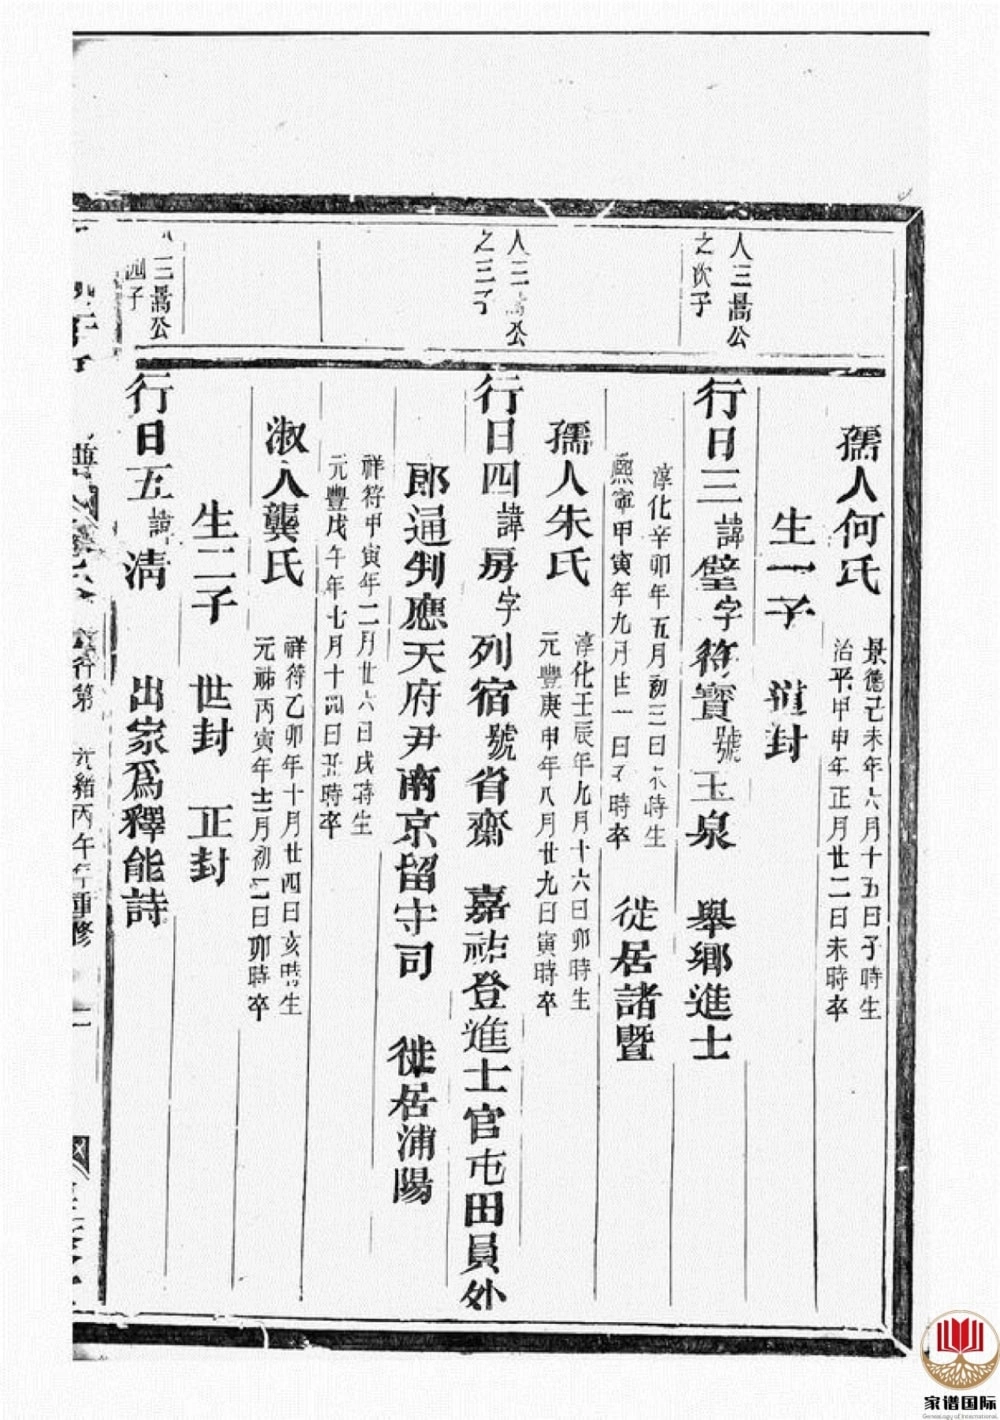 孺人何氏
景德己未年六月十五日子時生
治平甲申年正月廿二日未時卒
生一子 道封
人三暠公
之次子
行日三諱璧字符寶號玉泉 舉鄉進士
淳化辛卯年五月初三日未時生
熙寧甲寅年九月廿一日子時卒
徙居諸暨
孺人朱氏
淳化壬辰年九月十六日卯時生
元豐庚申年八月廿九日寅時卒
人三暠公
之三子
行日四諱房字列宿號省齋 嘉祐登進士官屯田員外
郎通判應天府尹南京留守司 徙居浦陽
祥符甲寅年二月廿六日戌時生
元豐戊午年七月十四日丑時卒
淑人龔氏
祥符乙卯年十月廿四日亥時生
元祐丙寅年十二月初二日卯時卒
生二子 世封 正封
三暠公
四子
行日五諱清 出家為釋能詩
行第
光緒丙午年重修
家谱国际
Genealogy of International